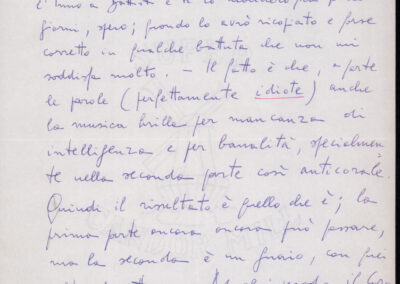 l'Inno a
giorni, spero; quando lo avrò ricopiato e forse
corretto in qualche battuta che non mi
soddisfa molto. — Il fatto è che, a parte
le parole (perfettamente idiote) anche
la musica brilla per mancanza di
intelligenza e per banalità, specialmen-
te nella seconda parte così anticorale.
Quindi il risultato è quello che è; la
prima parte ancora ancora può passare,
ma la seconda è un guaio, con quei
il